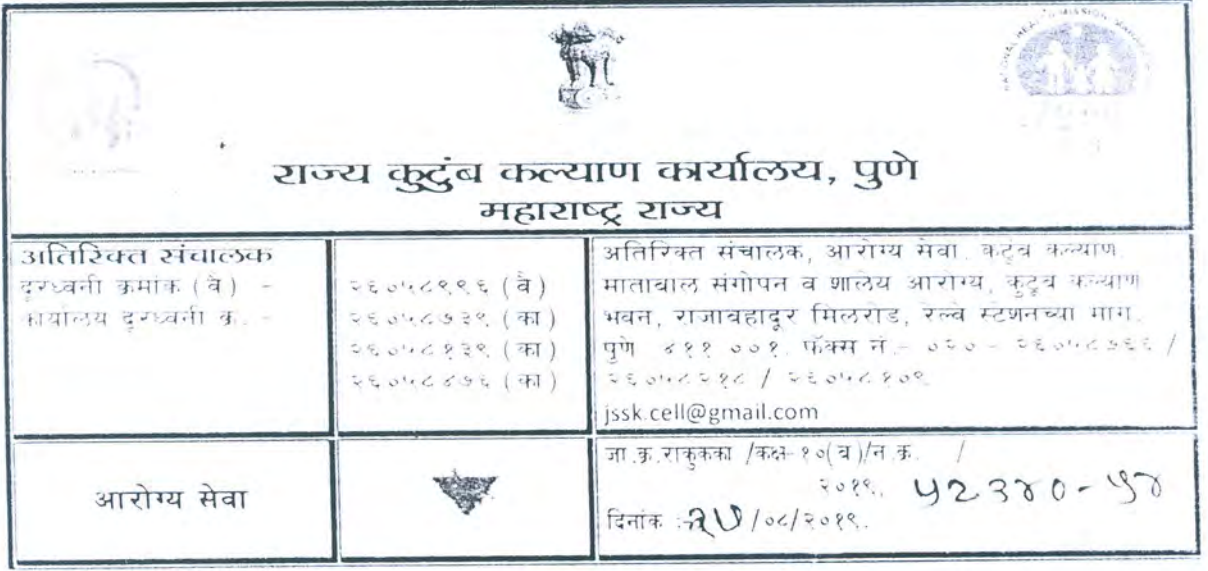 NATIONAL HEALTH MISSION
राज्य कुटुंब कल्याण कार्यालय, पुणे
महाराष्ट्र राज्य
अतिरिक्त संचालक
दूरध्वनी क्रमांक (वै) -
कार्यालय दूरध्वनी क्र. -
२६०५८९९६ (वै)
२६०५८७३९ (का)
२६०५८१३९ (का)
२६०५८४७६ (का)
अतिरिक्त संचालक, आरोग्य सेवा, कुटुंब कल्याण,
माताबाल संगोपन व शालेय आरोग्य, कुटूंब कल्याण
भवन, राजाबहादूर मिलरोड, रेल्वे स्टेशनच्या मागे,
पुणे ४११ ००१. फॅक्स नं.- ०२० - २६०५८७६६ /
२६०५८२१८ / २६०५८१०९
jssk.cell@gmail.com
आरोग्य सेवा
जा.क्र.राकुकका /कक्ष-१०(ब)/न.क्र. /
२०१९. ५२३४०-५४
दिनांक : /०८/२०१९.